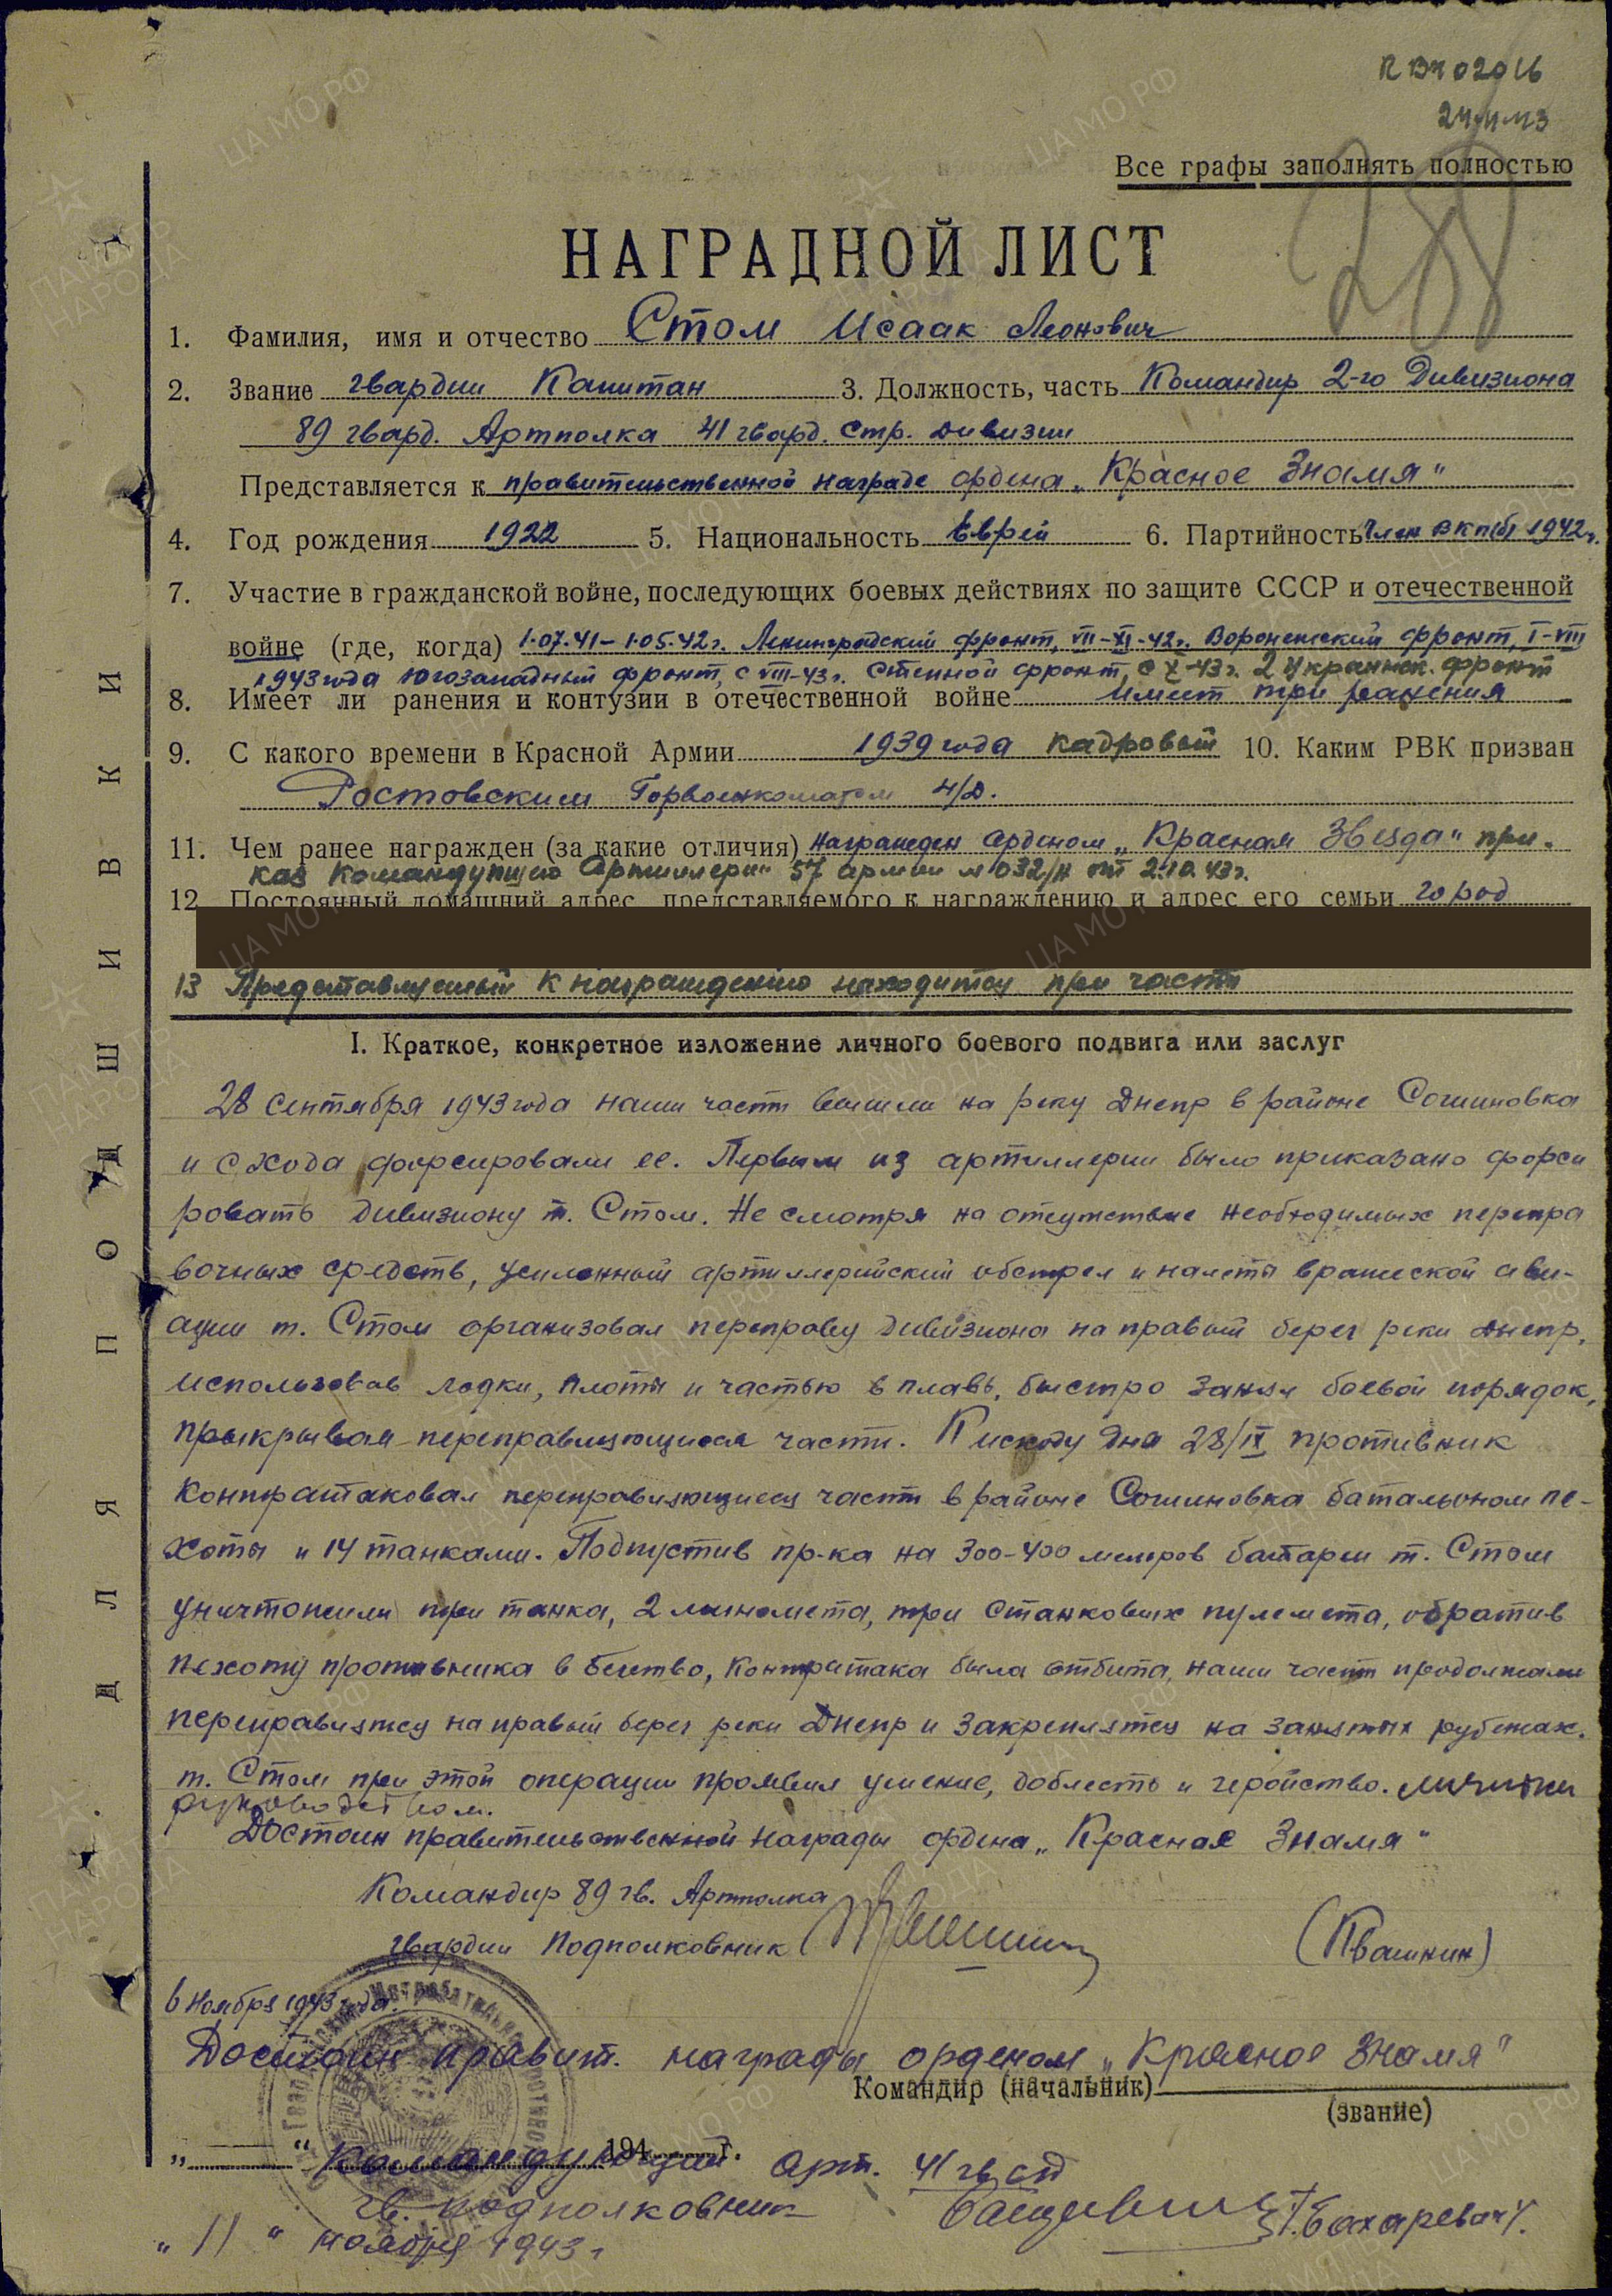 24.11.43
Все графы заполнять полностью
НАГРАДНОЙ ЛИСТ
1. Фамилия, имя и отчество Стом Исаак Леонович
2. Звание гвардии Капитан 3. Должность, часть Командир 2-го Дивизиона
89 гвард. Артполка 41 гвард. Стр. дивизии
Представляется к правительственной награде ордена „Красное Знамя"
4. Год рождения 1922 5. Национальность Еврей 6. Партийность Член ВКП(б) 1942г.
7. Участие в гражданской войне, последующих боевых действиях по защите СССР и отечественной
войне (где, когда) 1.07.41-1.05.42г. Ленинградский фронт, VII-XI-42г. Воронежский фронт, I-VIII
1943 года Югозападный фронт, с VIII-43г. Степной фронт, с X-43г. 2 Украинск. фронт
8. Имеет ли ранения и контузии в отечественной войне имеет три ранения
9. С какого времени в Красной Армии 1939 года кадровый 10. Каким РВК призван
Ростовским Горвоенкоматом н/Д.
11. Чем ранее награжден (за какие отличия) Награжден орденом „Красная Звезда" при-
каз Командующего Артиллерии 57 армии № 032/н от 2.10.43г.
12 Постоянный домашний адрес представляемого к награждению и адрес его семьи город
13 Представляемый к награждению находится при части
I. Краткое, конкретное изложение личного боевого подвига или заслуг
28 сентября 1943 года наши части вышли на реку Днепр в районе Сошиновка
и с хода форсировали ее. Первым из артиллерии было приказано форси
ровать дивизиону т. Стом. Не смотря на отсутствие необходимых перепра
вочных средств, усиленный артиллерийский обстрел и налеты вражеской ави-
ации т. Стом организовал переправу дивизиона на правый берег реки Днепр,
использовав лодки, плоты и частью в плавь, быстро занял боевой порядок,
прикрывая переправляющиеся части. К исходу дня 28/IX противник
контратаковал переправляющиеся части в районе Сошиновка батальоном пе-
хоты и 14 танками. Подпустив пр-ка на 300-400 метров батареи т. Стом
уничтожили три танка, 2 миномета, три станковых пулемета, обратив
пехоту противника в бегство, контратака была отбита, наши части продолжали
переправлятся на правый берег реки Днепр и закреплятся на занятых рубежах.
т. Стом при этой операции проявил умение, доблесть и геройство. личным
руководством.
Достоин правительственной награды ордена „Красная Знамя"
Командир 89 гв. Артполка
гвардии подполковник (Квашнин)
6 Ноября 1943 года.
Достоин правит. награды орденом „Красное Знамя"
Командир (начальник)
(звание)
„ “ 194 г.
Командующий арт. 41 гв сд
гв. подполковник /Бахаревич/.
„11" ноября 1943 г
ДЛЯ ПОДШИВКИ
ЦА МО РФ
ПАМЯТЬ НАРОДА